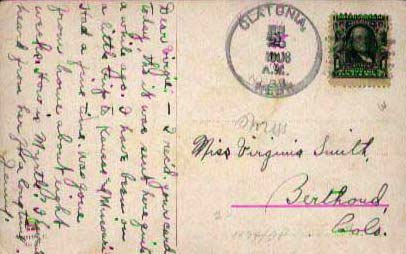 Dear Virgie, — I rec'd your card
today tho it was sent here quite
a while ago. I have been on
a little trip to Kansas & Missouri
Had a fine time. was gone
from home about eight
weeks. How is Myrtle? I
heard from her
CLATONIA,
1908
A.M.
NEB.
Miss Virginia Smith,
Berthoud,
Colo.